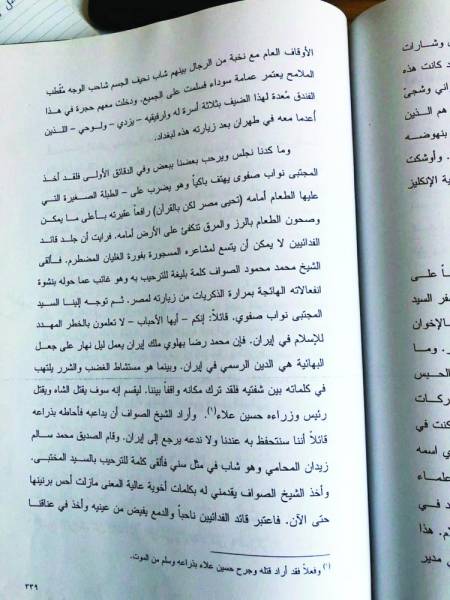 الأوقاف العام مع نخبة من الرجال بينهم شاب نحيف الجسم شاحب الوجه مُقطب
الملامح يعتمر عمامة سوداء فسلمت على الجميع. ودخلت معهم حجرة في هذا
الفندق مُعدة لهذا الضيف بثلاثة أسرة له ولرفيقيه - يزدي - ولوحي - اللذين
أعدما معه في طهران بعد زيارته هذه لبغداد.
وما كدنا نجلس ويرحب بعضنا ببعض وفي الدقائق الأولى فلقد أخذ
المجتبى نواب صفوي يهتف باكياً وهو يضرب على - الطبلة الصغيرة التي
عليها الطعام أمامه (تحيى مصر لكن بالقرآن) رافعاً عقيرته بأعلى ما يمكن
وصحون الطعام بالرز والمرق تتكفئ على الأرض أمامه. فرايت أن جلد قائد
الفدائيين لا يمكن أن يتسع لمشاعره المسجورة بفورة الغليان المضطرم. فألقى
الشيخ محمد محمود الصواف كلمة بليغة للترحيب به وهو غائب عما حوله بنشوة
انفعالاته الهائجة بمرارة الذكريات من زيارته لمصر. ثم توجه إلينا السيد
المجتبى نواب صفوي. قائلاً: إنكم - أيها الأحباب - لا تعلمون بالخطر المهدد
للإسلام في إيران. فإن محمد رضا بهلوي ملك إيران يعمل ليل نهار على جعل
البهائية هي الدين الرسمي في إيران. وبينما هو مستشاط الغضب والشرر يلتهب
في كلماته بين شفتيه فلقد ترك مكانه واقفاً بيننا. ليقسم إنه سوف يقتل الشاه ويقتل
رئيس وزراءه حسين علاء(١). وأراد الشيخ الصواف أن يداعبه فأحاطه بذراعه
قائلاً أننا سنتحفظ به عندنا ولا ندعه يرجع إلى إيران. وقام الصديق محمد سالم
زيدان المحامي وهو شاب في مثل سني فألقى كلمة للترحيب بالسيد المجتبى.
وأخذ الشيخ الصواف يقدمني له بكلمات أخوية عالية المعنى مازلت أحس برنينها
حتى الآن. فاعتبر قائد الفدائيين ناحباً والدمع يفيض من عينيه وأخذ في عناقنا
(١) وفعلاً فقد أراد قتله وجرح حسين علاء بذراعه وسلم من الموت.
٣٣٩
وشارات
كانت هذه
وشجئ
هم الذين
بنهوضه
وأوشكت
ية الإنكليز
اً على
فر السيد
بالإخوان
وما
الحبس
ركات
كنت في
ي اسمه
علماء
د في
م. هذا
ي مدير